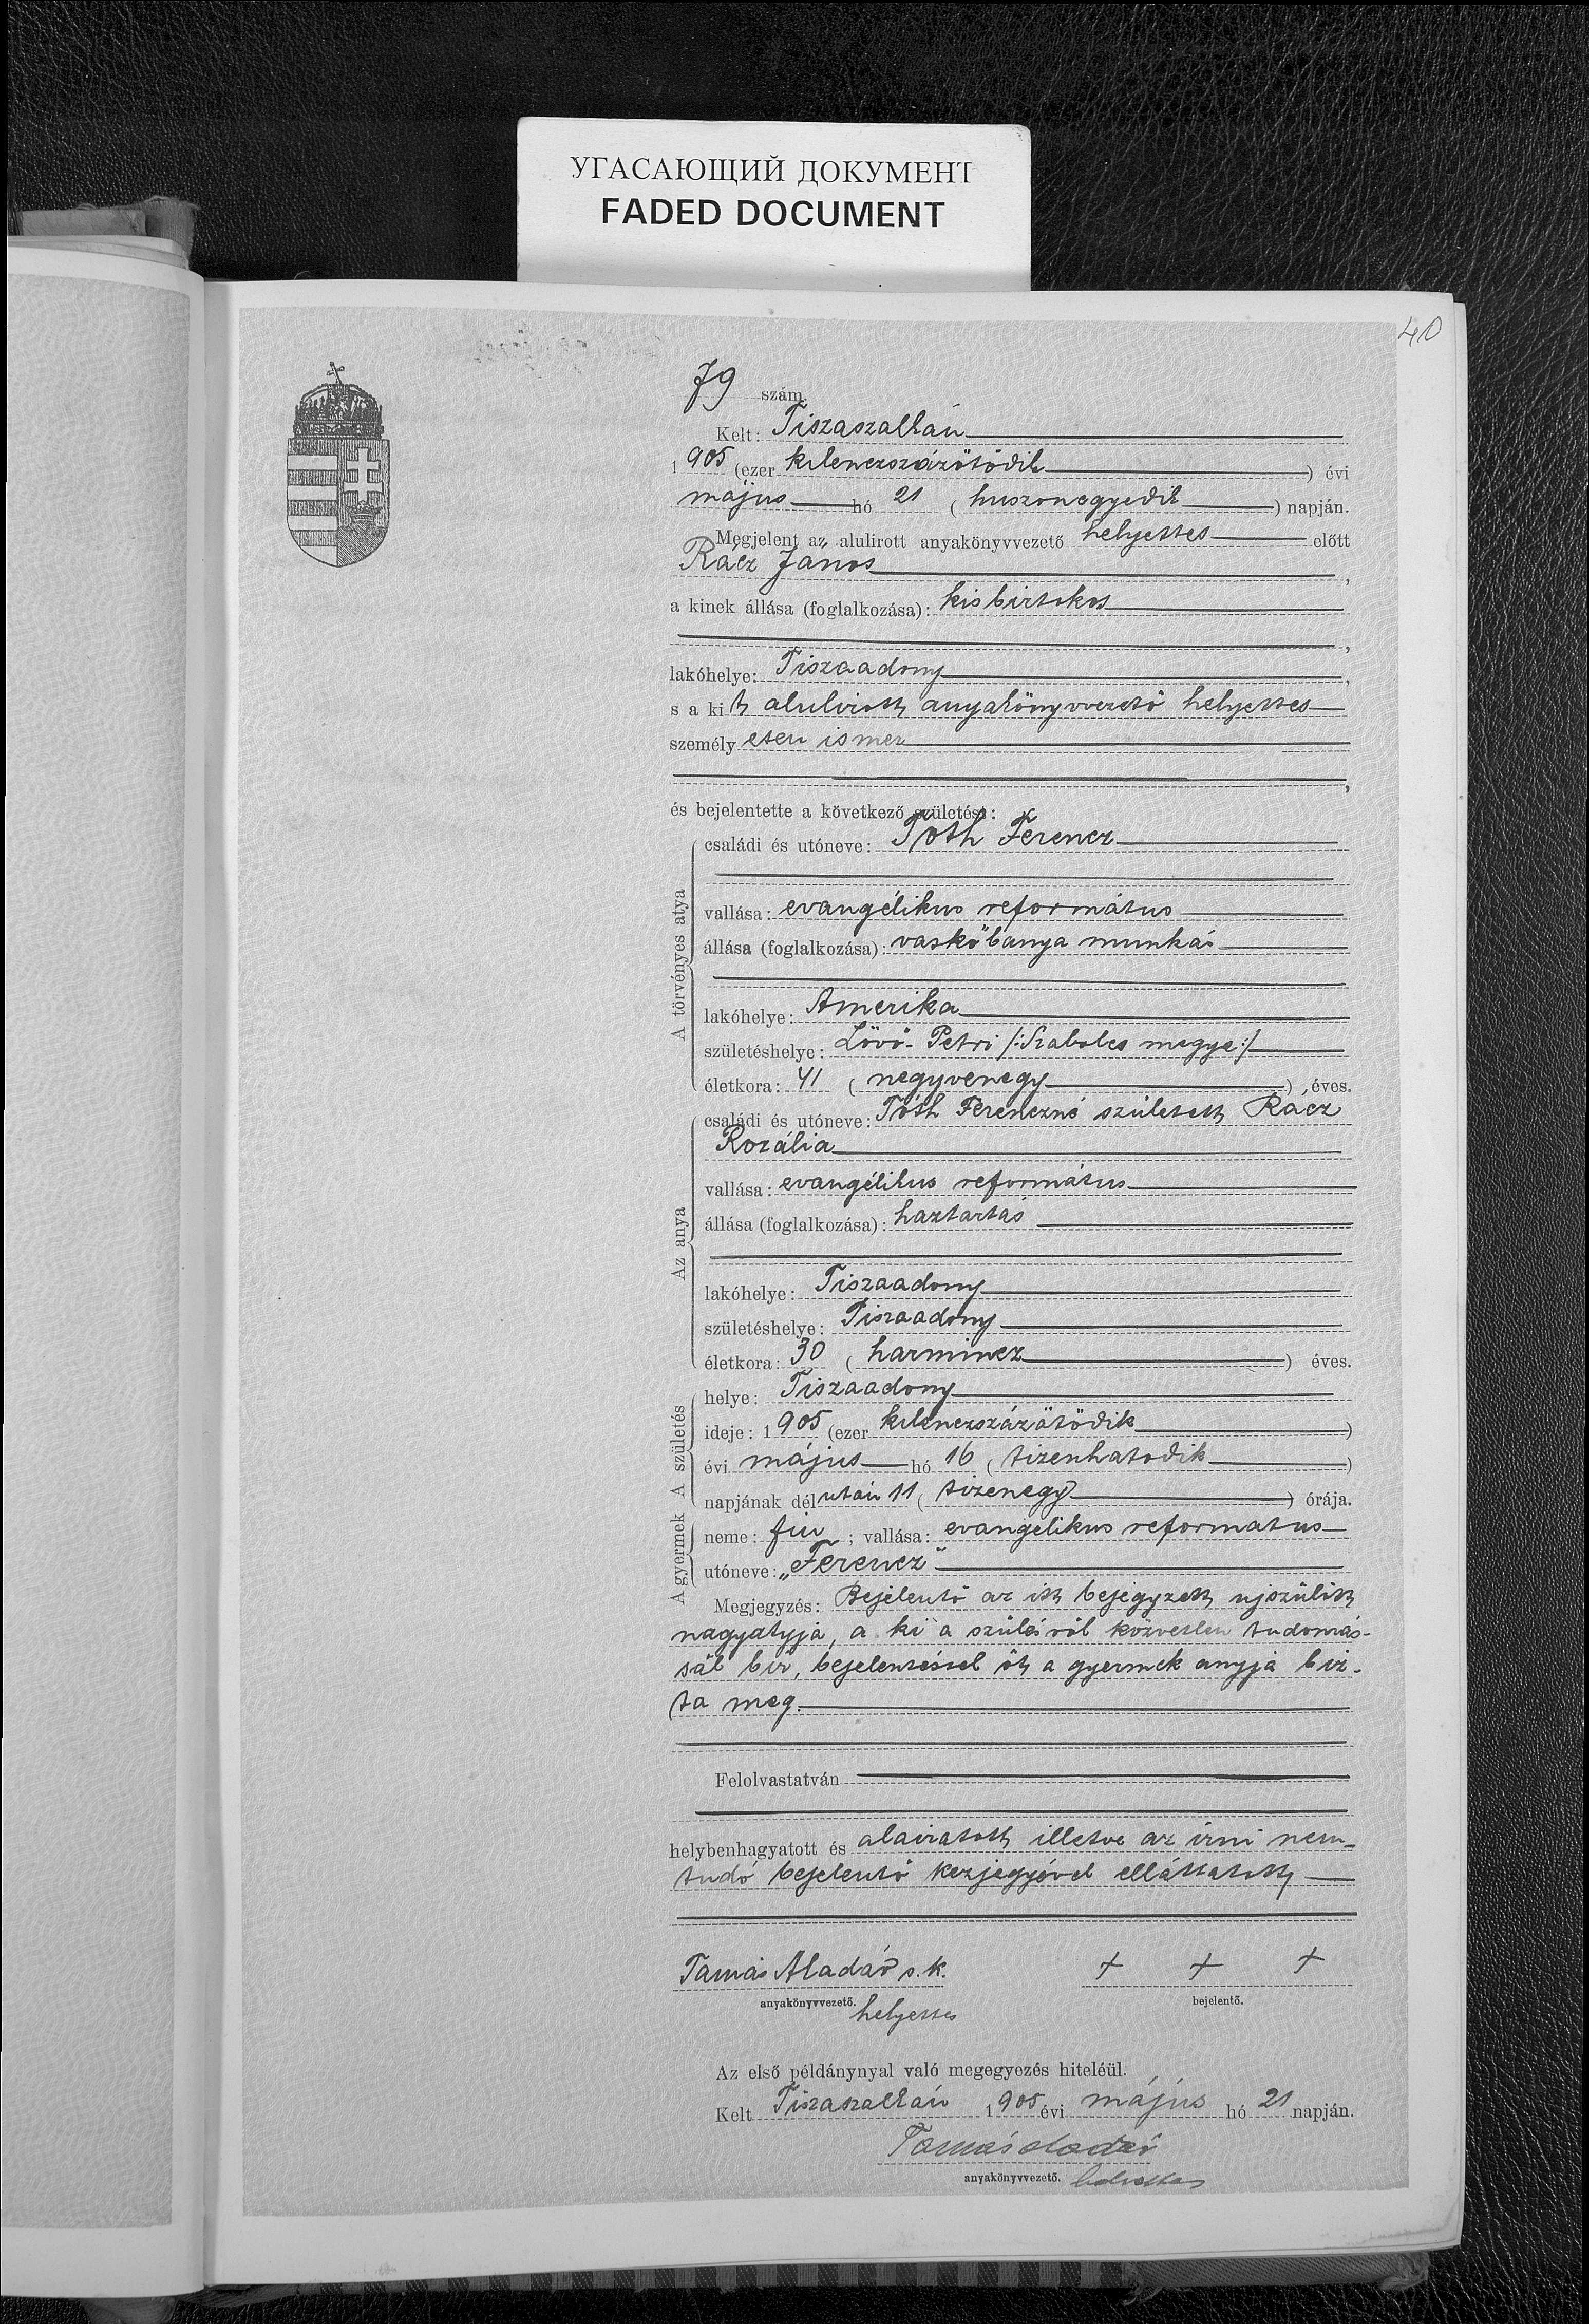 УГАСАЮЩИЙ ДОКУМЕНТ
FADED DOCUMENT
40
79 szám.
Kelt: Tiszaszalkán
1905 (ezer kilenczszázötödik) évi
május hó 21 (huszonegyedik) napján.
Megjelent az alulirott anyakönyvvezető helyettes előtt
Rácz János,
a kinek állása (foglalkozása): kisbirtokos
,
lakóhelye: Tiszaadony,
s a kit alulirott anyakönyvvezető helyettes
személyesen ismer
,
és bejelentette a következő születést:
A törvényes atya
családi és utóneve: Tóth Ferencz
vallása: evangélikus református
állása (foglalkozása): vaskőbanya munkás
lakóhelye: Amerika
születéshelye: Lövő-Petri /:Szabolcs megye:/
életkora: 41 (negyvenegy) éves.
Az anya
családi és utóneve: Tóth Ferenczné született Rácz
Rozália
vallása: evangélikus református
állása (foglalkozása): haztartás
lakóhelye: Tiszaadony
születéshelye: Tiszaadony
életkora: 30 (harmincz) éves.
A születés
helye: Tiszaadony
ideje: 1905 (ezer kilenczszázötödik)
évi május hó 16 (tizenhatodik)
napjának délután 11 (tizenegy) órája.
A gyermek
neme: fiu; vallása: evangelikus reformatus
utóneve: „Ferencz"
Megjegyzés: Bejelentő az itt bejegyzett ujszülött
nagyatyja, a ki a szülésről közvetlen tudomás-
sal bir, bejelentéssel őt a gyermek anyja biz-
ta meg.
Felolvastatván
helybenhagyatott és alairatott illetve az irni nem
tudó bejelentő kezjegyével elláttatott
Tamás Aladár s. k. + + +
anyakönyvvezető. helyettes bejelentő.
Az első példánynyal való megegyezés hiteléül.
Kelt Tiszaszalkán 1905 évi május hó 21 napján.
Tamás Aladár
anyakönyvvezető. helyettes